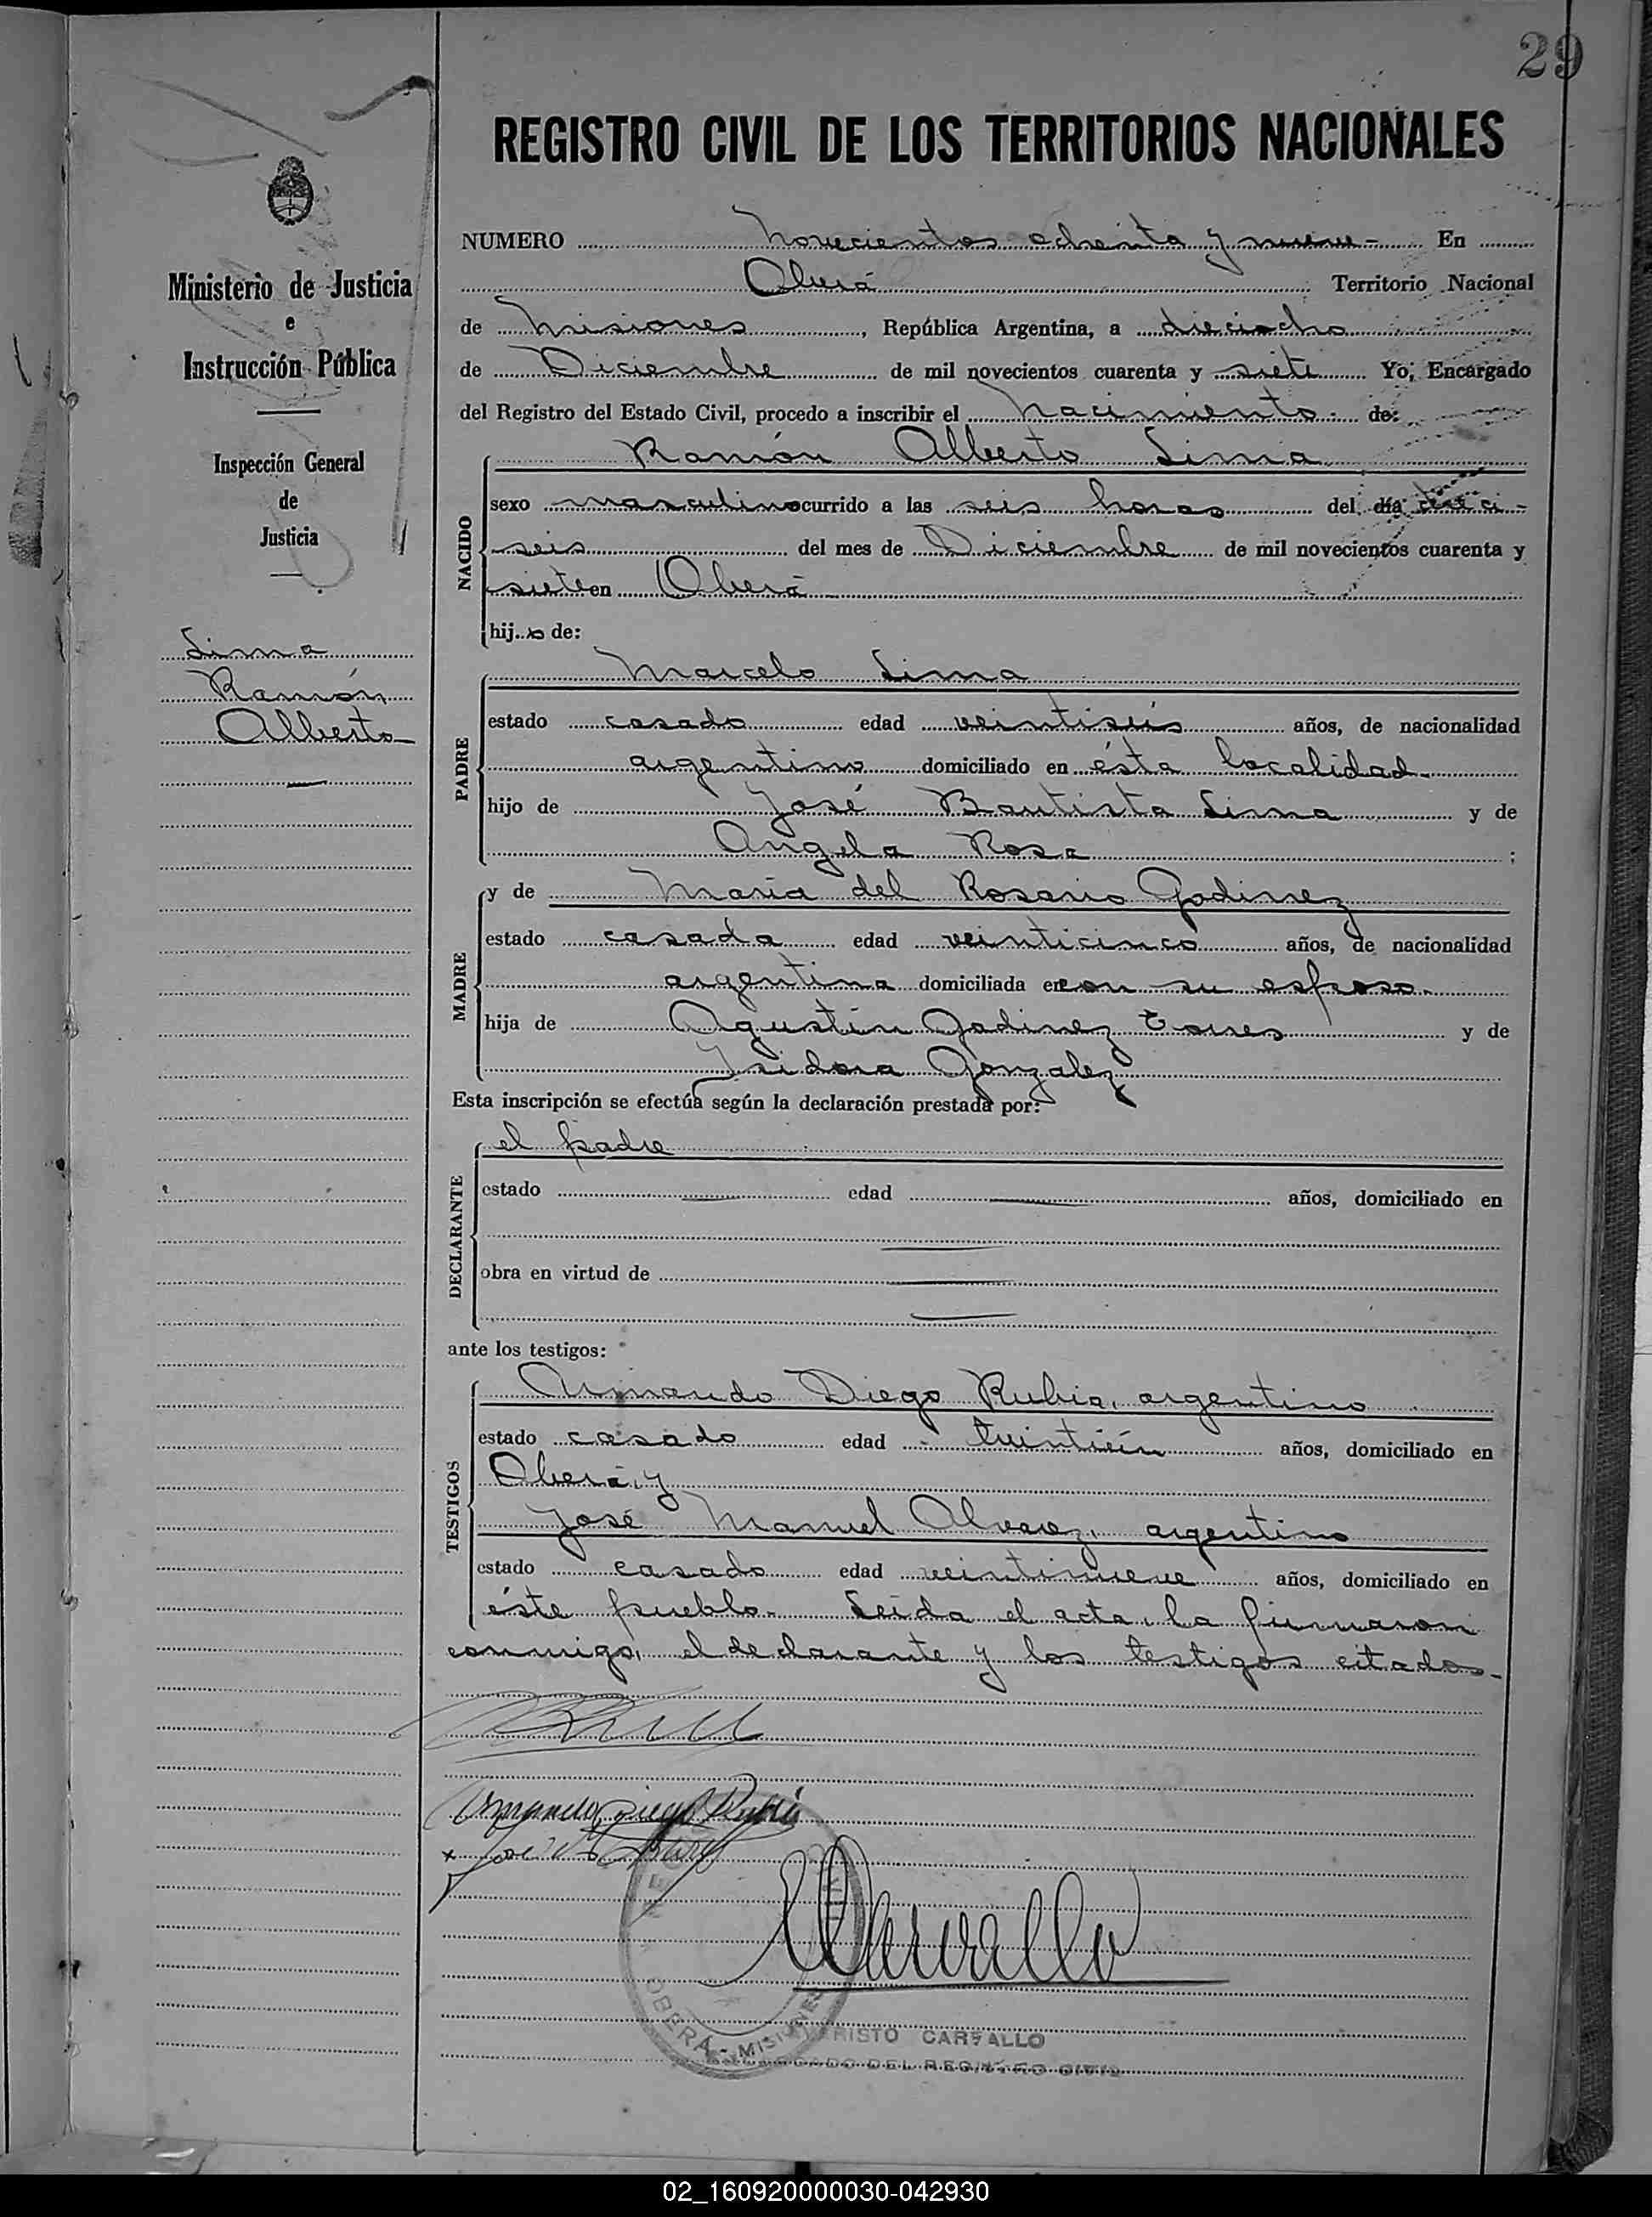 29
REGISTRO CIVIL DE LOS TERRITORIOS NACIONALES
Ministerio de Justicia
e
Instrucción Pública
Inspección General
de
Justicia
Lima
Ramón
Alberto
NUMERO novecientos ochenta y nueve - En
Oberá Territorio Nacional
de Misiones, República Argentina, a dieciocho
de Diciembre de mil novecientos cuarenta y siete Yo, Encargado
del Registro del Estado Civil, procedo a inscribir el nacimiento de:
Ramón Alberto Lima
NACIDO
sexo masculino ocurrido a las seis horas del día dieci-
seis del mes de Diciembre de mil novecientos cuarenta y
siete en Oberá
hijo de:
Marcelo Lima
PADRE
estado casado edad veintiseis años, de nacionalidad
argentino domiciliado en ésta localidad.
hijo de José Bautista Lima y de
Angela Rosa ;
y de María del Rosario Godinez
MADRE
estado casada edad veinticinco años, de nacionalidad
argentina domiciliada en con su esposo.
hija de Agustín Godinez Torres y de
Isidora Gonzalez
Esta inscripción se efectúa según la declaración prestada por:
el padre
DECLARANTE
estado edad años, domiciliado en
obra en virtud de
ante los testigos:
Armando Diego Rubio, argentino
TESTIGOS
estado casado edad años, domiciliado en
Oberá, y
José Manuel Alvarez, argentino
estado casado edad veintinueve años, domiciliado en
éste pueblo. Leída el acta, la firmaron
conmigo, el declarante y los testigos citados-
Armando Diego Rubio
OBERÁ - MISIONES
ARISTO CARVALLO
ENCARGADO DEL REGISTRO CIVIL
02_160920000030-042930